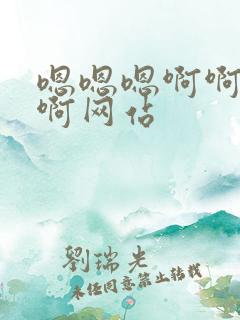 嗯嗯嗯啊啊
啊网佔
劉瑞光
未经同意禁止转载